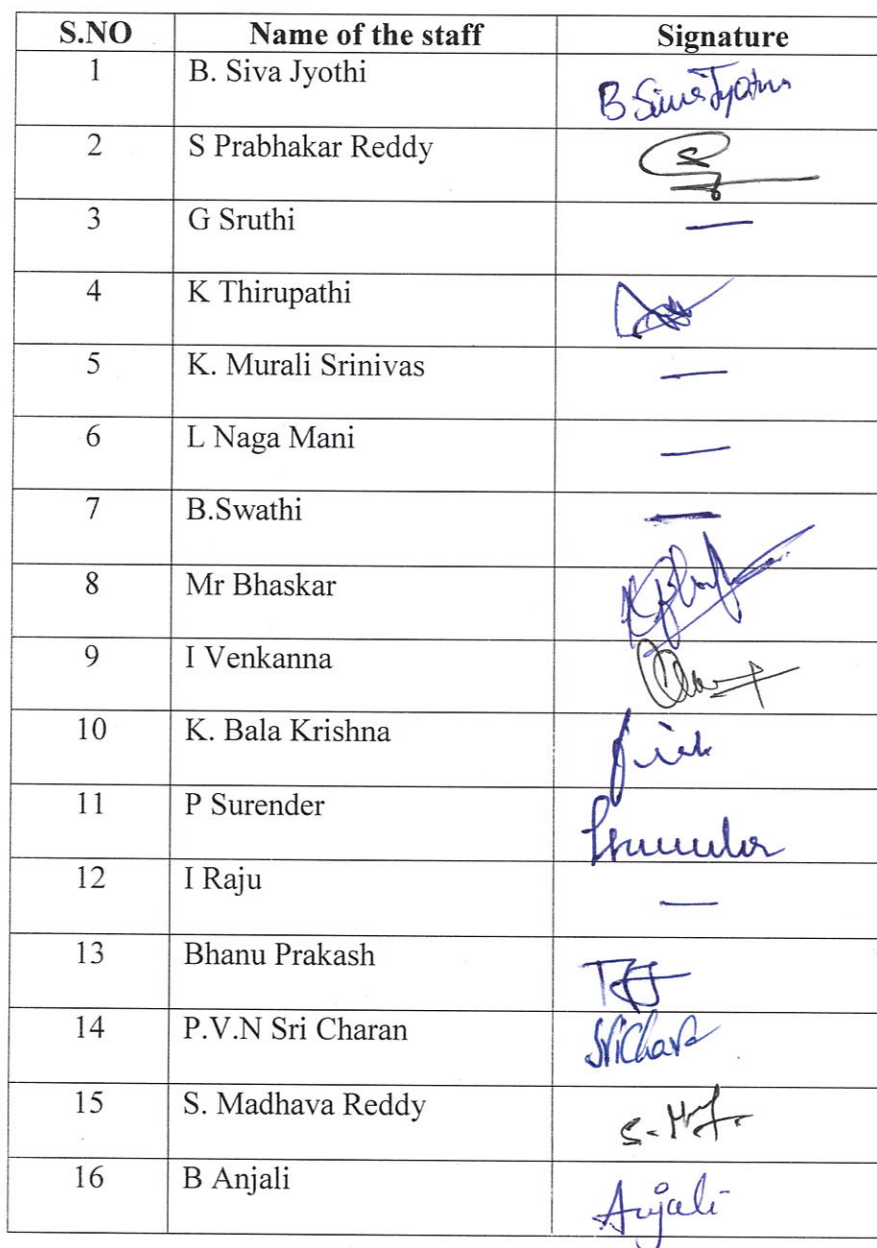 S.NO Name of the staff Signature
1 B. Siva Jyothi B Siva Jyothi
2 S Prabhakar Reddy
3 G Sruthi —
4 K Thirupathi
5 K. Murali Srinivas —
6 L Naga Mani —
7 B.Swathi —
8 Mr Bhaskar
9 I Venkanna
10 K. Bala Krishna
11 P Surender
12 I Raju —
13 Bhanu Prakash
14 P.V.N Sri Charan
15 S. Madhava Reddy
16 B Anjali Anjali